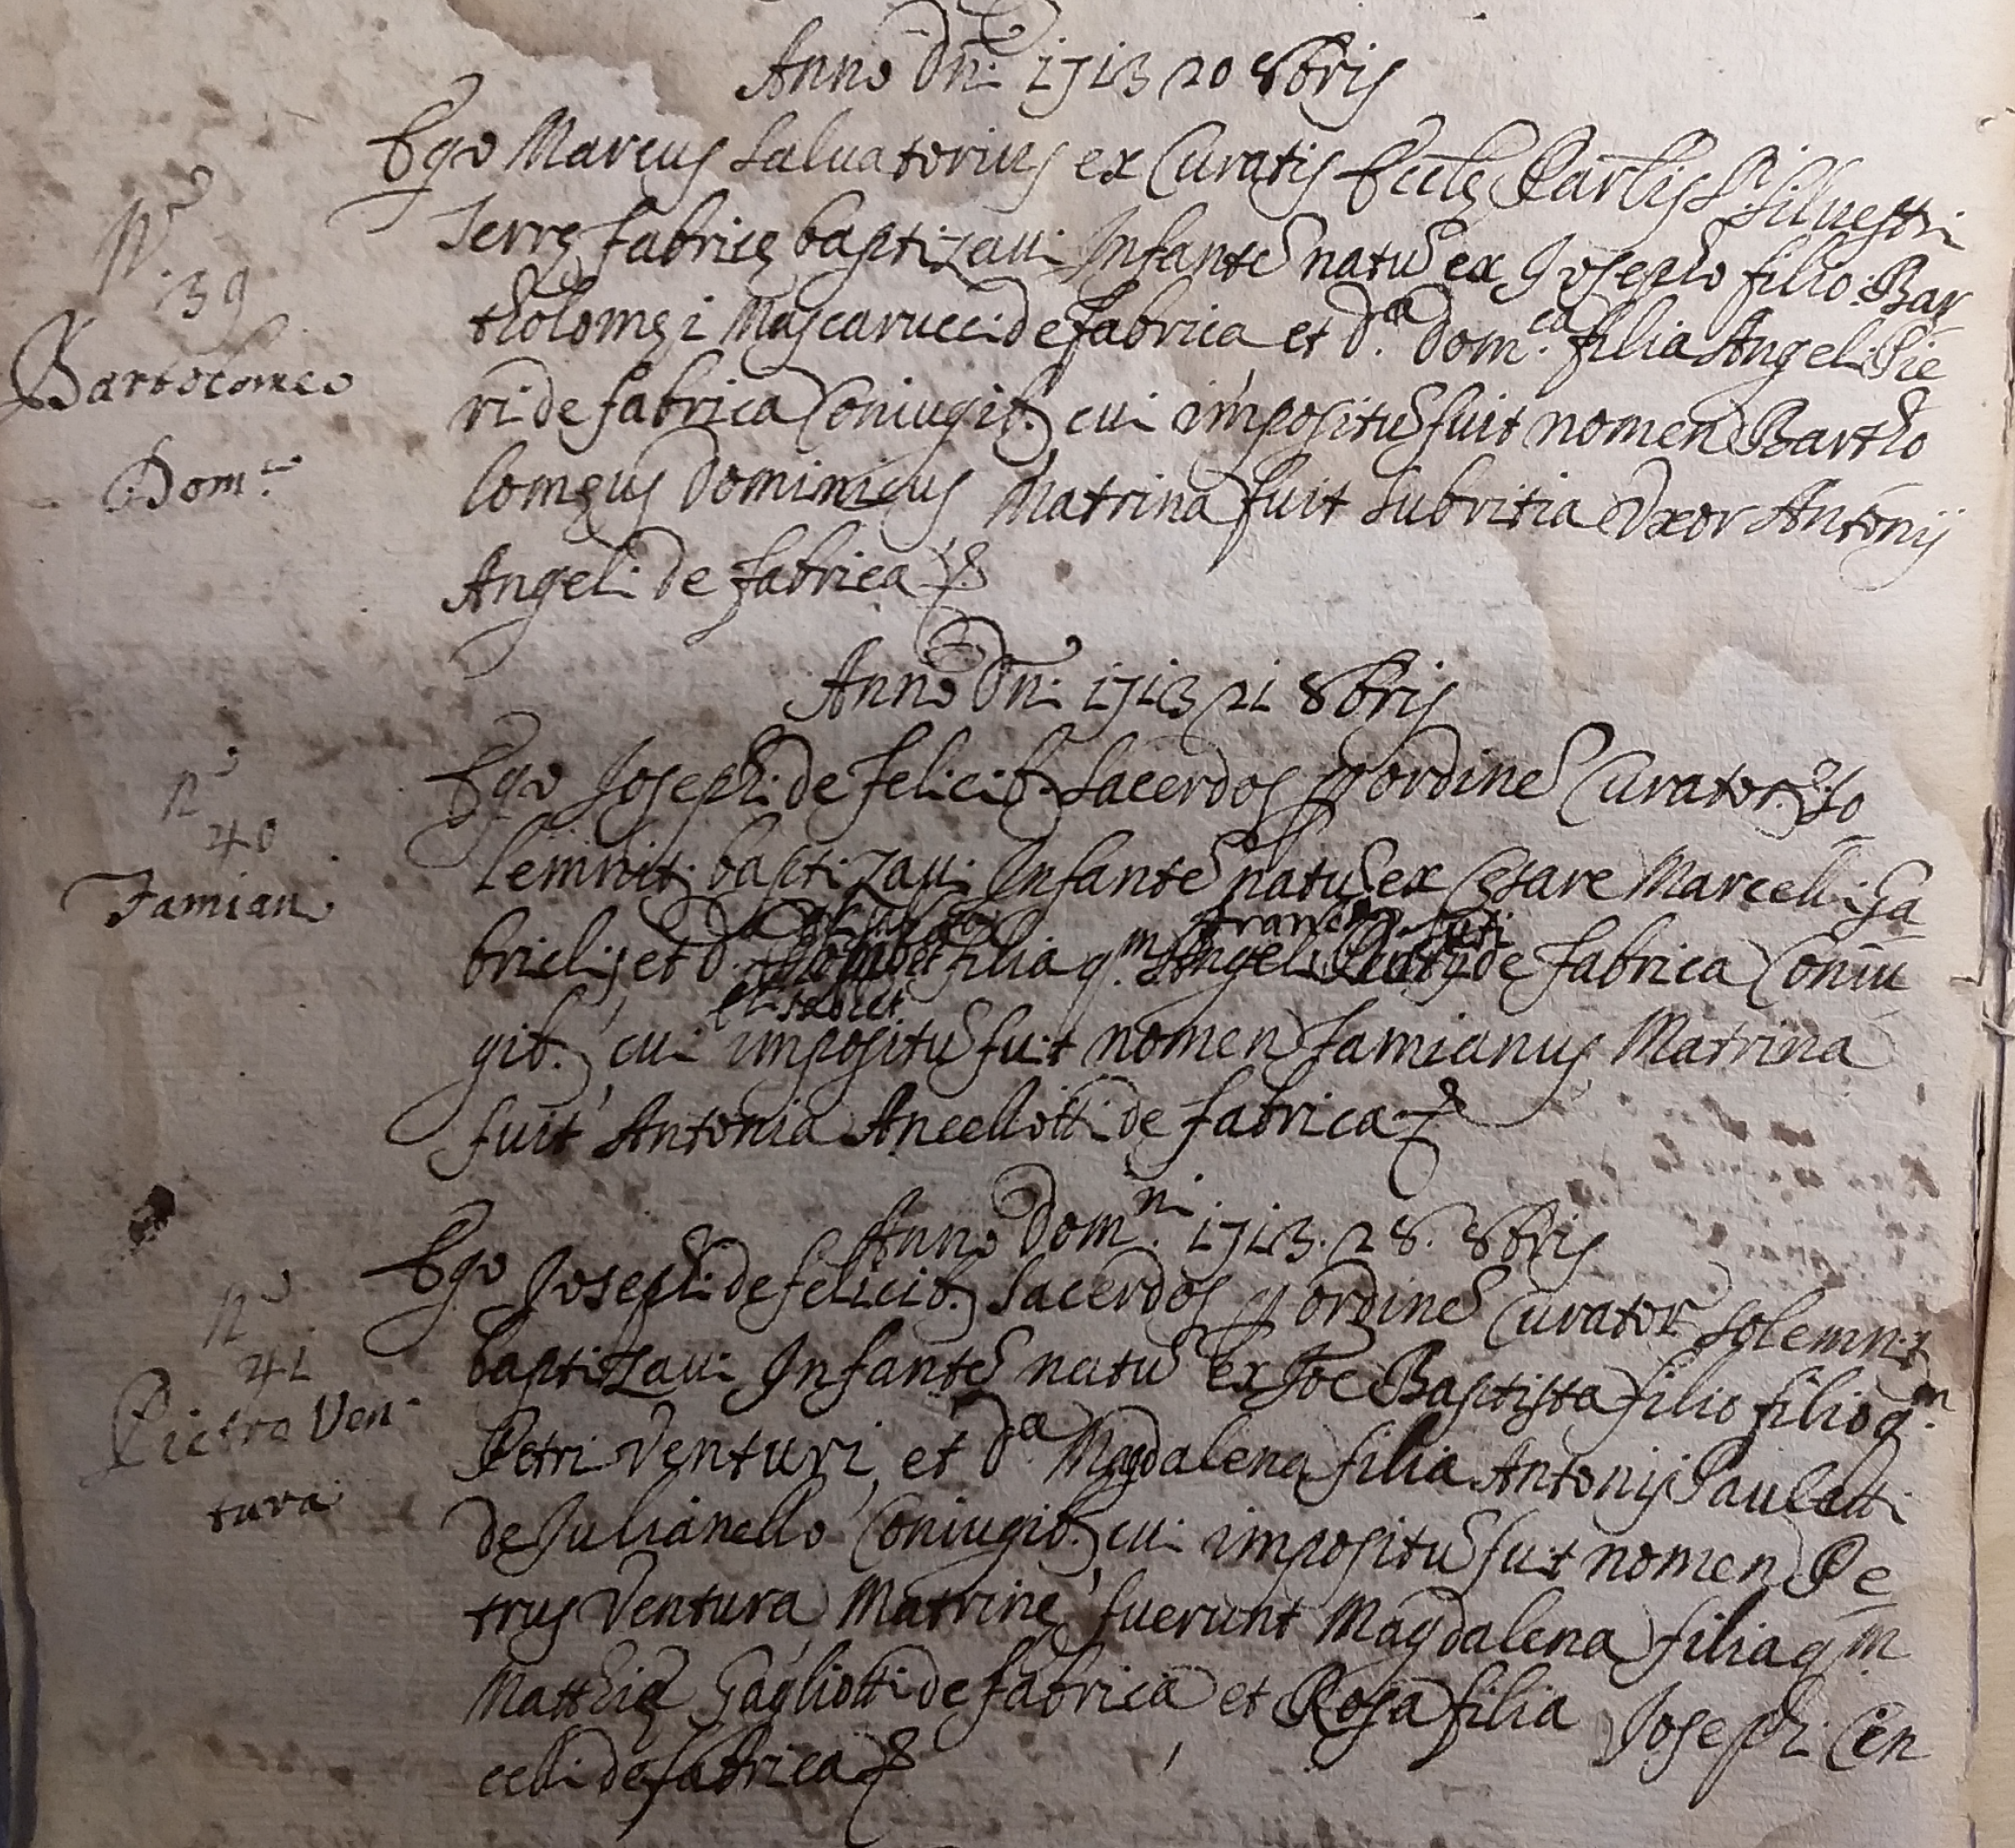 Anno Dni 1713 20 8bris
Ego Marcus Saluatorius ex Curatis Eccle Parlis S. Siluestri
N.º
Terrę Fabricę baptizaui Infante natu ex Josepho filio Bar
39
tholomęi Mascarucci de Fabrica et d.a Dom.ca filia Angeli Pie
Bartolomeo
ri de Fabrica Coniugib. cui impositu fuit nomen Bartho
Dom.co
lomęus Dominicus Matrina fuit Subritia Uxor Antonij
Angeli de Fabrica
Anno Dni 1713 21 8bris
Ego Joseph de Felicib. Sacerdos ordine Curator. So
N.º
40
lemnit. baptizaui Infante natu ex Cęsare Marcelli Ga
Famian
Francisci
brielij et d. filia q.m Angeli de Fabrica Coniu
Elisabet
gib. cui impositu fuit nomen Famianus Matrina
fuit Antonia Ancellotti de Fabrica
Anno Dom.ni 1713. 28. 8bris
Ego Joseph de Felicib. Sacerdos ordine Curator Solemnit
N.º
41
baptizaui Infante natu ex Joe Baptista filio filio q.m
Pietro Ven
Petri Venturi, et d.a Magdalena filia Antonij Pauletti
tura
de Julianello Coniugib. cui impositu fuit nomen Pe
trus Ventura, Matrinę fuerunt Magdalena filia q m
Matthię Gagliotti de Fabrica et Rosa filia Joseph Cen
celli de Fabrica